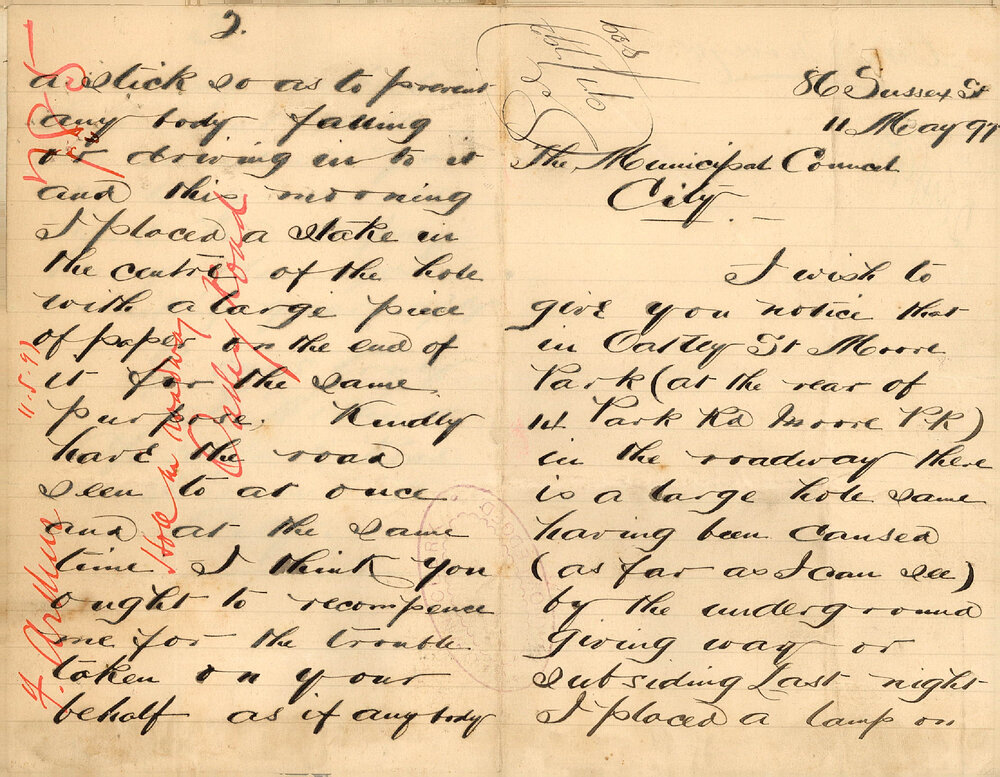 86 Sussex St
11 May 97
The Municipal Council
City.
I wish to
give you notice that
in Oatley St Moore
Park (at the rear of
14 Park Rd Moore PK)
in the roadway there
is a large hole same
having been caused
(as far as I can see)
by the underground
giving way or
subsiding Last night
I placed a lamp on
2.
a stick so as to prevent
any body falling
or driving in to it
and this morning
I placed a stake in
the centre of the hole
with a large piece
of paper on the end of
it for the same
purpose. Kindly
have the road
seen to at once
and at the same
time I think you
ought to recompence
me for the trouble
taken on your
behalf as if any body
11.5.97
Hole in roadway
Oatley Road